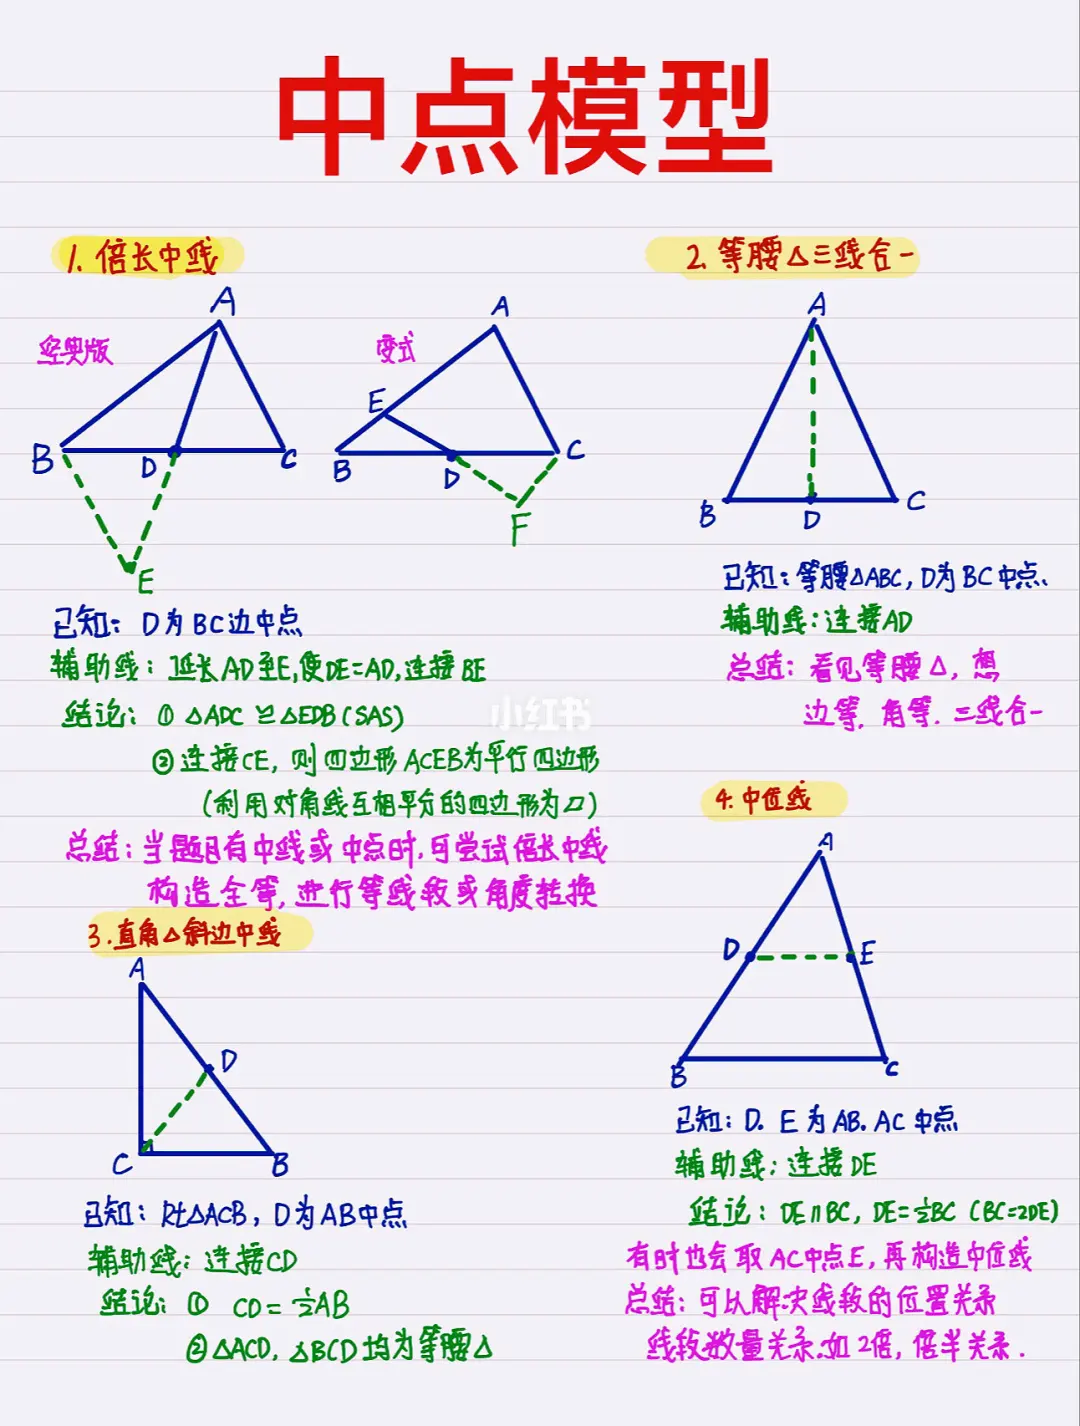 中点模型
1.倍长中线
经典版
A
B
D
C
E
变式
A
E
B
D
C
F
已知: D为BC边中点
辅助线: 延长AD至E,使DE=AD,连接BE
结论: ① △ADC≌△EDB(SAS)
② 连接CE, 则四边形ACEB为平行四边形
(利用对角线互相平分的四边形为▱)
总结: 当题目有中线或中点时,可尝试倍长中线
构造全等, 进行等线段或角度转换
2.等腰△三线合一
A
B
D
C
已知: 等腰△ABC, D为BC中点.
辅助线: 连接AD
总结: 看见等腰△, 想
边等. 角等. 三线合一
小红书
3.直角△斜边中线
A
D
C
B
已知: Rt△ACB, D为AB中点
辅助线: 连接CD
结论: ① CD=½AB
② △ACD, △BCD均为等腰△
4.中位线
A
D
E
B
C
已知: D. E为AB. AC中点
辅助线: 连接DE
结论: DE∥BC, DE=½BC (BC=2DE)
有时也会取AC中点E, 再构造中位线
总结: 可以解决线段的位置关系
线段数量关系.如2倍, 倍半关系.